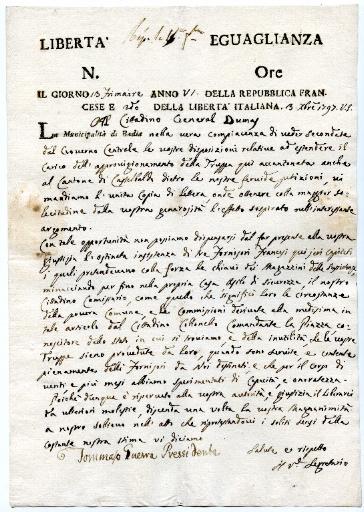 LIBERTA' EGUAGLIANZA
N. Ore
IL GIORNO 13 frimaire ANNO VI. DELLA REPUBBLICA FRAN-
CESE E 2do DELLA LIBERTA' ITALIANA. 3 Xbre 1797. V.S.
Al Cittadino General Dumas
La Municipalità di Badia nella vera compiacenza di veder secondate
dal Governo Centrale le vostre disposizioni relative ad estendere il
Carico dell'approvigionamento della Truppa qui accantonata anche
al Cantone di Castelbaldo dietro le nostre fervide petizioni vi
mandiamo l'unita Copia di lettera onde ottenere colla maggior sol-
lecitudine dalla vostra generosità l'effetto sospirato sull'interessante
argomento.
Con tale opportunità non possiamo dispensarsi dal far presente alla vostra
giustizia l'ostinata insistenza di tre Fornitori Francesi qui
i quali pretendevano colla forza le chiavi dei Magazzini della
minacciando per fino nella propria Casa Asilo di Sicurezza, il nostro
Cittadino Comissario, come quello che significò loro le circostanze
della povera Comune, e le Commissioni devenute alla medesima in
tale articolo dal Cittadino Collonello Comandante la Piazza co-
noscitore dello stato in cui si troviamo e della inutilità, che le vostre
Truppe sieno provedute da loro, quando sono servite e contente
pienamente dalli Fornitori da Noi destinati, e che per il corso di
venti e più mesi abbiamo sperimentati di Capacità e onoratezza.
Poichè dunque è riservato alla vostra autorità e giustizia il liberarci
da ulteriori molestie, discenda una volta la vostra magnanimità
a nostro sollievo nell'atto che ripettendovi i soliti sensi della
costante nostra stima vi diciamo
Salute e rispetto
Tommaso Guerra Pressidente
Segretario